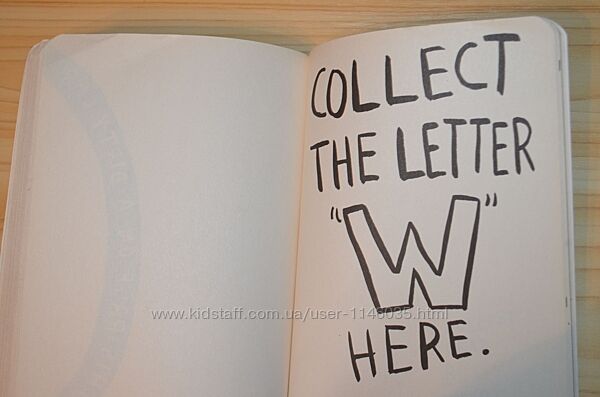 COLLECT
THE LETTER
"W"
HERE.
www.kidstaff.com.ua/user-1146035.html